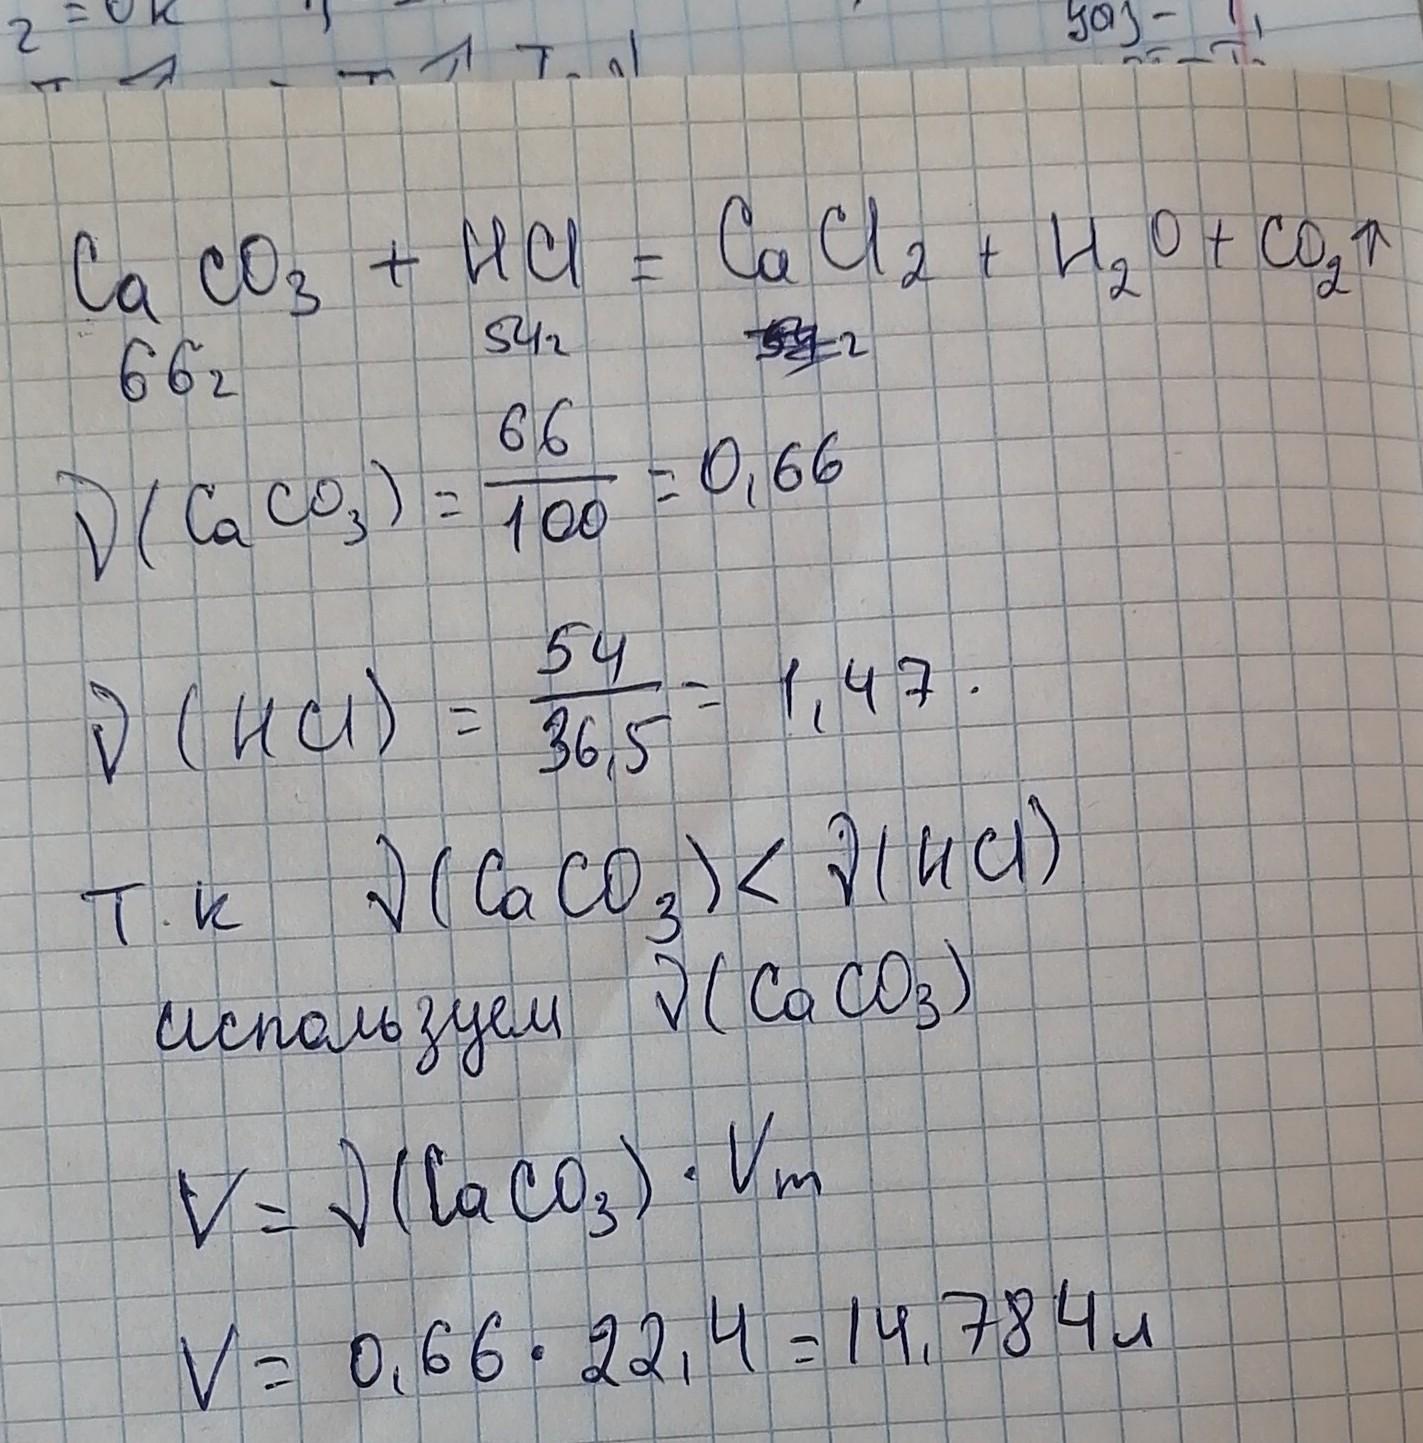 CaCO₃ + HCl = CaCl₂ + H₂O + CO₂↑
66г 54г г
ν(CaCO₃) = 66/100 = 0,66
ν(HCl) = 54/36,5 = 1,47.
т.к ν(CaCO₃) < ν(HCl)
используем ν(CaCO₃)
V = ν(CaCO₃) · Vm
V = 0,66 · 22,4 = 14,784л